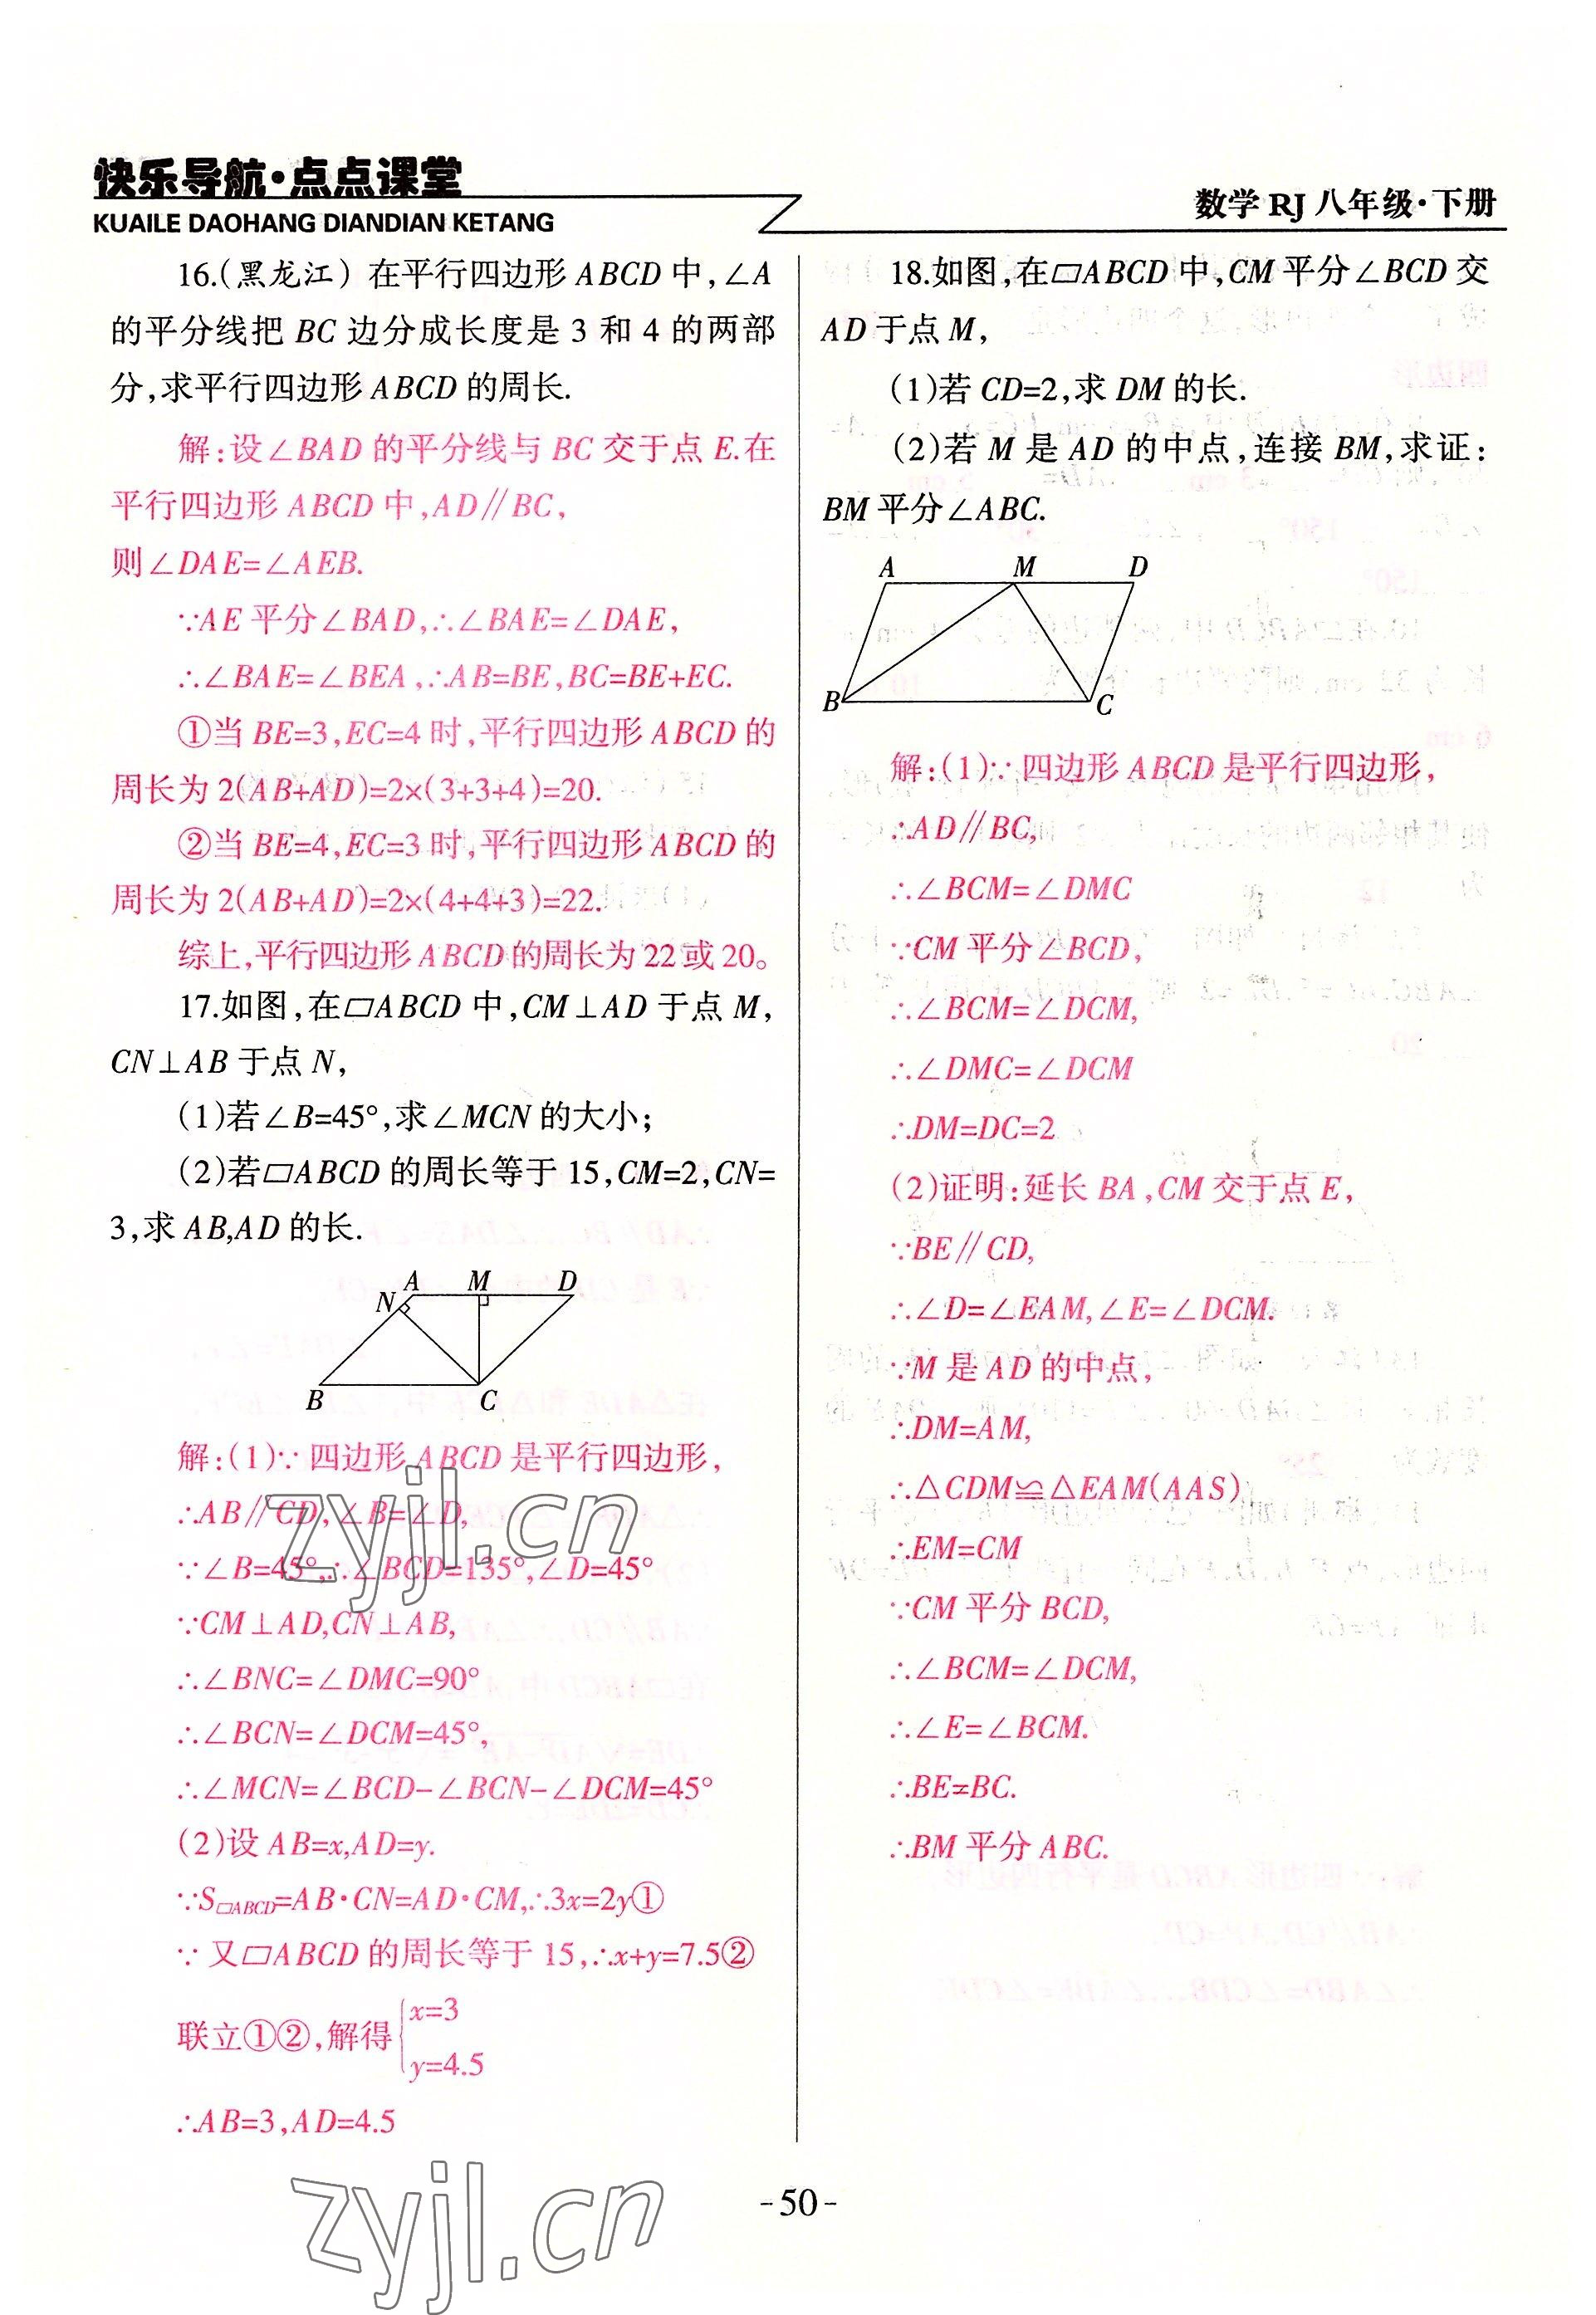 快乐导航·点点课堂
KUAILE DAOHANG DIANDIAN KETANG
数学 RJ 八年级·下册
16.(黑龙江) 在平行四边形 ABCD 中,∠A
的平分线把 BC 边分成长度是 3 和 4 的两部
分,求平行四边形 ABCD 的周长.
解:设∠BAD 的平分线与 BC 交于点 E.在
平行四边形 ABCD 中,AD∥BC,
则∠DAE=∠AEB.
∵AE 平分∠BAD,∴∠BAE=∠DAE,
∴∠BAE=∠BEA,∴AB=BE,BC=BE+EC.
①当 BE=3,EC=4 时,平行四边形 ABCD 的
周长为 2(AB+AD)=2×(3+3+4)=20.
②当 BE=4,EC=3 时,平行四边形 ABCD 的
周长为 2(AB+AD)=2×(4+4+3)=22.
综上,平行四边形 ABCD 的周长为 22 或 20。
17.如图,在▱ABCD 中,CM⊥AD 于点 M,
CN⊥AB 于点 N,
(1)若∠B=45°,求∠MCN 的大小;
(2)若▱ABCD 的周长等于 15,CM=2,CN=
3,求 AB,AD 的长.
A M D
N
B C
解:(1)∵四边形 ABCD 是平行四边形,
∴AB∥CD,∠B=∠D,
∵∠B=45°,∴∠BCD=135°,∠D=45°
∵CM⊥AD,CN⊥AB,
∴∠BNC=∠DMC=90°
∴∠BCN=∠DCM=45°,
∴∠MCN=∠BCD-∠BCN-∠DCM=45°
(2)设 AB=x,AD=y.
∵S▱ABCD=AB·CN=AD·CM,∴3x=2y①
∵又▱ABCD 的周长等于 15,∴x+y=7.5②
联立①②,解得{x=3
y=4.5
∴AB=3,AD=4.5
18.如图,在▱ABCD 中,CM 平分∠BCD 交
AD 于点 M,
(1)若 CD=2,求 DM 的长.
(2)若 M 是 AD 的中点,连接 BM,求证:
BM 平分∠ABC.
A M D
B C
解:(1)∵四边形 ABCD 是平行四边形,
∴AD∥BC,
∴∠BCM=∠DMC
∵CM 平分∠BCD,
∴∠BCM=∠DCM,
∴∠DMC=∠DCM
∴DM=DC=2
(2)证明:延长 BA,CM 交于点 E,
∵BE∥CD,
∴∠D=∠EAM,∠E=∠DCM.
∵M 是 AD 的中点,
∴DM=AM,
∴△CDM≌△EAM(AAS)
∴EM=CM
∵CM 平分 BCD,
∴∠BCM=∠DCM,
∴∠E=∠BCM.
∴BE=BC.
∴BM 平分 ABC.
zyjl.cn
zyjl.cn
-50-